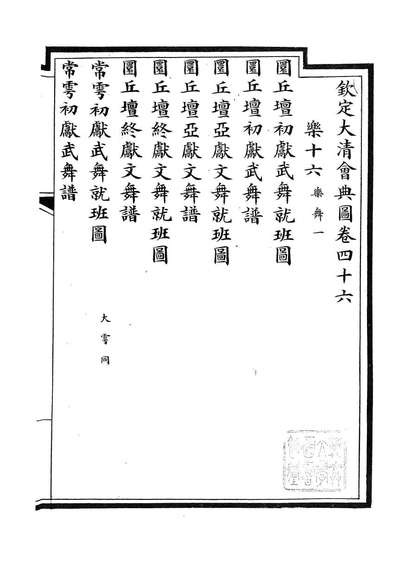 欽定大清會典圖卷四十六
樂十六 樂舞一
圜丘壇初獻武舞就班圖
圜丘壇初獻武舞譜
圜丘壇亞獻文舞就班圖
圜丘壇亞獻文舞譜
圜丘壇終獻文舞就班圖
圜丘壇終獻文舞譜
常雩初獻武舞就班圖 大雩同
常雩初獻武舞譜